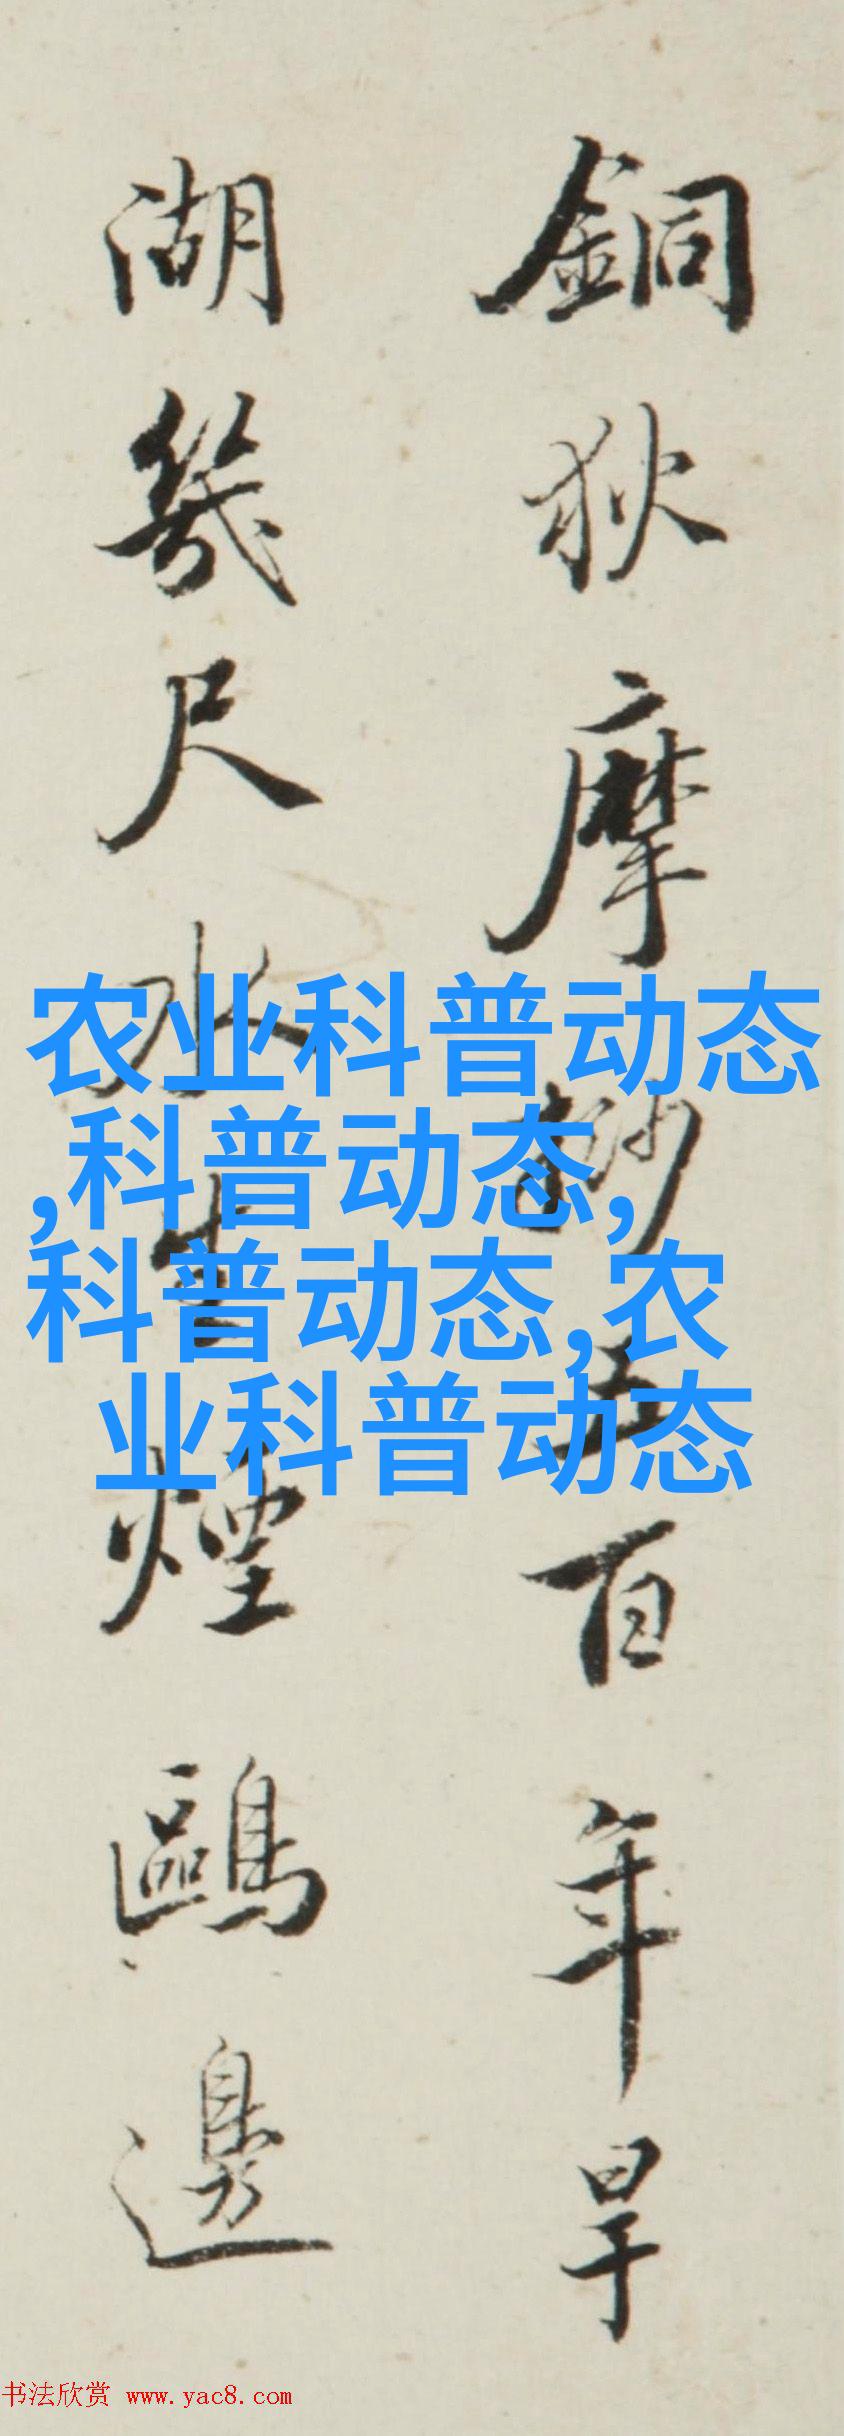 銅狄摩挲五百年旱
湖幾尺水生煙鷗邊
农业科普动态
,科普动态,
科普动态,农
业科普动态
书法欣赏 www.yac8.com